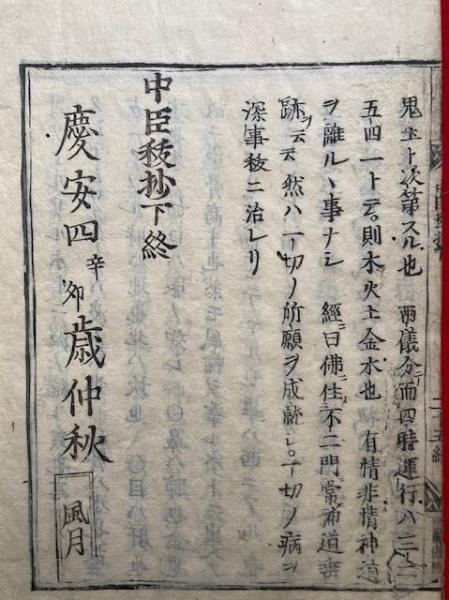 鬼土ト次第スル也 兩儀分而四時運行ハ三二
五四一ト云。則木火土金水也 有情非情神道
ヲ離ルヽ事ナシ 經曰佛住不二門常布道垂
跡ヲ云云 然ハ一切ノ所願ヲ成就シ。一切ノ病ヲ
深事秡ニ治レリ
中臣秡抄下終
慶安四辛卯歳仲秋
風月